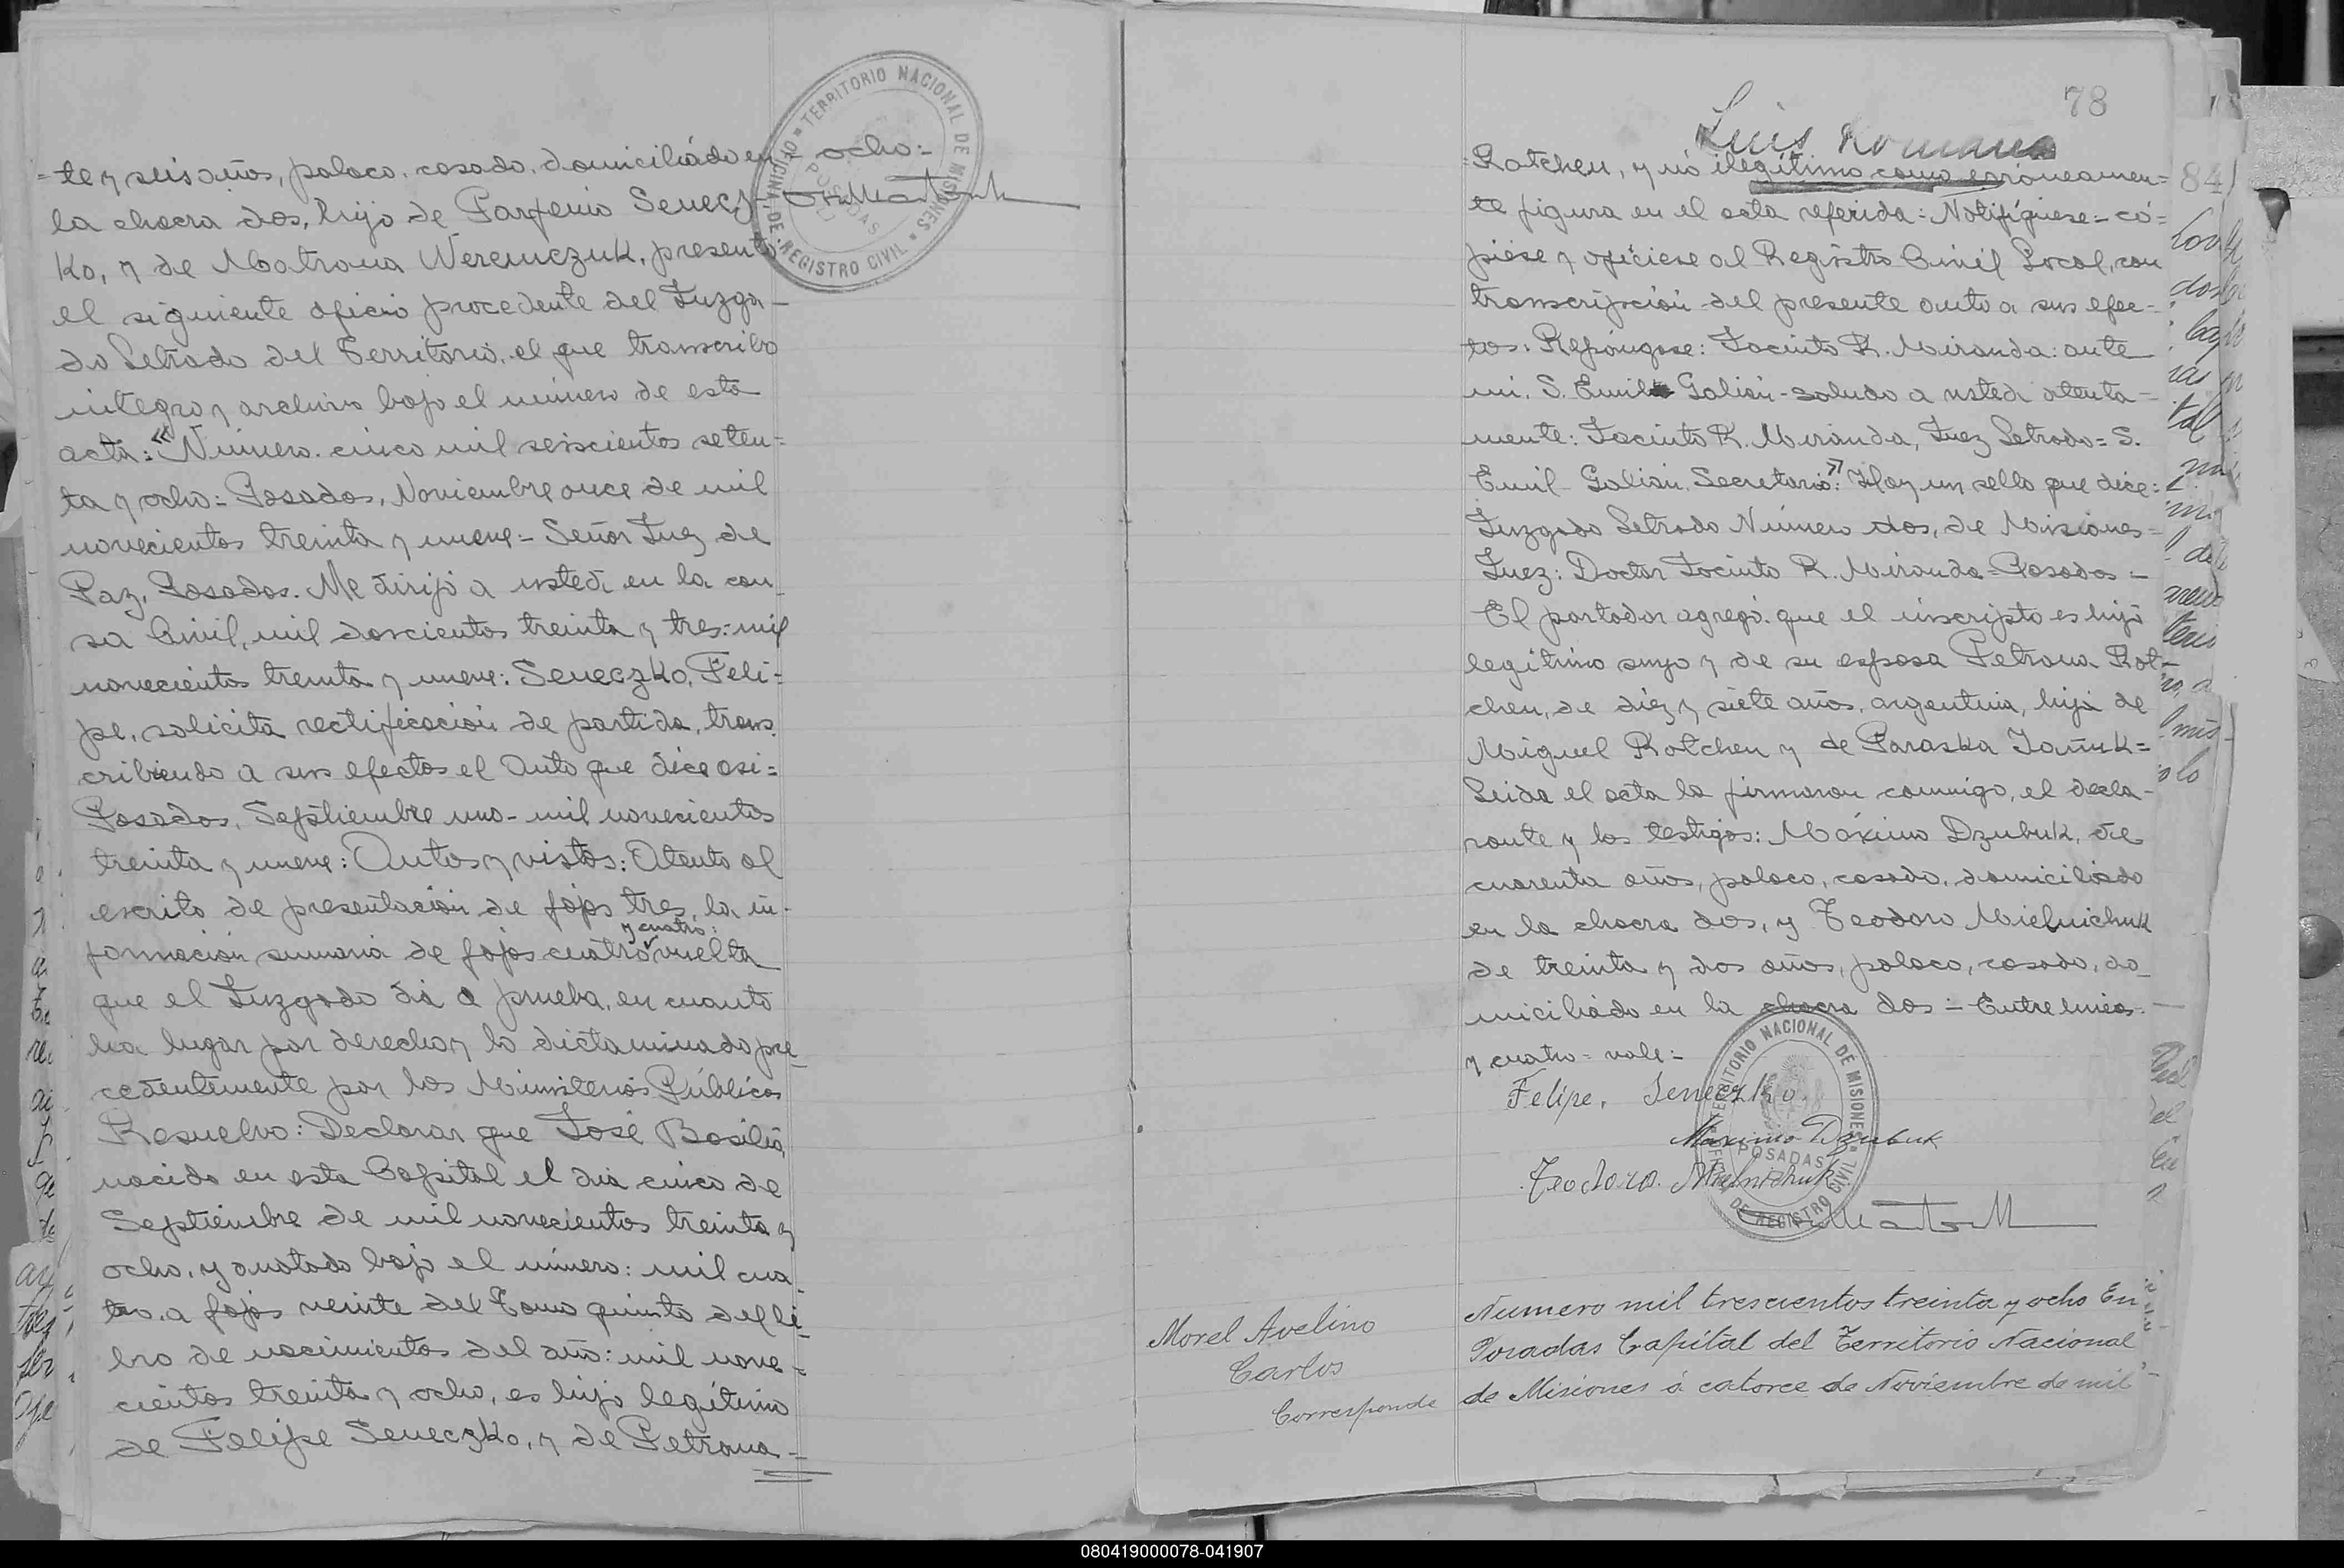 ocho:-
OFICINA DE REGISTRO CIVIL
TERRITORIO NACIONAL DE MISIONES
POSADAS
=te y seis años, polaco, casado, domiciliado en
la chacra dos, hijo de Parfenio Senecz-
ko, y de Matrona Weremczuk, presentó
el siguiente oficio procedente del Juzga-
do Letrado del Territorio, el que transcribo
integro y archivo bajo el número de esta
acta: "Número. cinco mil seiscientos seten=
ta y ocho= Posadas, Noviembre once de mil
novecientos treinta y nueve= Señor Juez de
Paz, Posadas. Me dirijo a usted en la cau-
sa Civil, mil doscientos treinta y tres: mil
novecientos treinta y nueve: Seneczko, Feli=
pe, solicita rectificación de partida, trans.
cribiendo a sus efectos el Auto que dice asi=
Posadas, Septiembre uno- mil novecientos
treinta y nueve: Autos y vistos: Atento al
escrito de presentación de fojas tres, la in-
y cuatro:
formación sumaria de fojas cuatro vuelta
que el Juzgado dá a prueba, en cuanto
ha lugar por derecho y lo dictaminado pre-
cedentemente por los Ministerios Públicos
Resuelvo: Declarar que José Basilio,
nacido en esta Capital el dia cinco de
Septiembre de mil novecientos treinta y
ocho, y anotado bajo el número: mil cua-
tro, a fojas veinte del Tomo quinto del li-
bro de nacimientos del año: mil nove-
cientos treinta y ocho, es hijo legítimo
de Felipe Seneczko, y de Petrona=
78
Luis Romano
=Rotchen, y nó ilegítimo como erroneamen=
te figura en el acta referida: Notifíquese= có=
piese y oficiese al Registro Civil Local, con
transcripción del presente auto a sus efec-
tos: Repóngase: Jacinto R. Miranda: ante
mi. S. Emil Galian- saludo a usted atenta-
mente: Jacinto R. Miranda, Juez Letrado= S.
Emil Galian. Secretario:" Hay un sello que dice:
Juzgado Letrado Número dos, de Misiones=
Juez: Doctor Jacinto R. Miranda= Posadas=
El portador agregó que el inscripto es hijo
legítimo suyo y de su esposa Petrona Rot-
chen, de diez y siete años, argentina, hija de
Miguel Rotchen y de Paraska Iañuk=
Leida el acta la firmaron conmigo, el decla-
rante y los testigos: Máximo Dzubuk, de
cuarenta años, polaco, casado, domiciliado
en la chacra dos, y Teodoro Mielnichuk
de treinta y dos años, polaco, casado, do-
miciliado en la chacra dos= Entre lineas-
y cuatro= vale:=
Felipe. Seneczko.
Maximo Dzubuk
Teodoro. Mielnichuk
OFICINA DE REGISTRO CIVIL
TERRITORIO NACIONAL DE MISIONES
POSADAS
Morel Avelino
Carlos
Corresponde
Numero mil trescientos treinta y ocho En
Posadas Capital del Territorio Nacional
de Misiones á catorce de Noviembre de mil
84
080419000078-041907